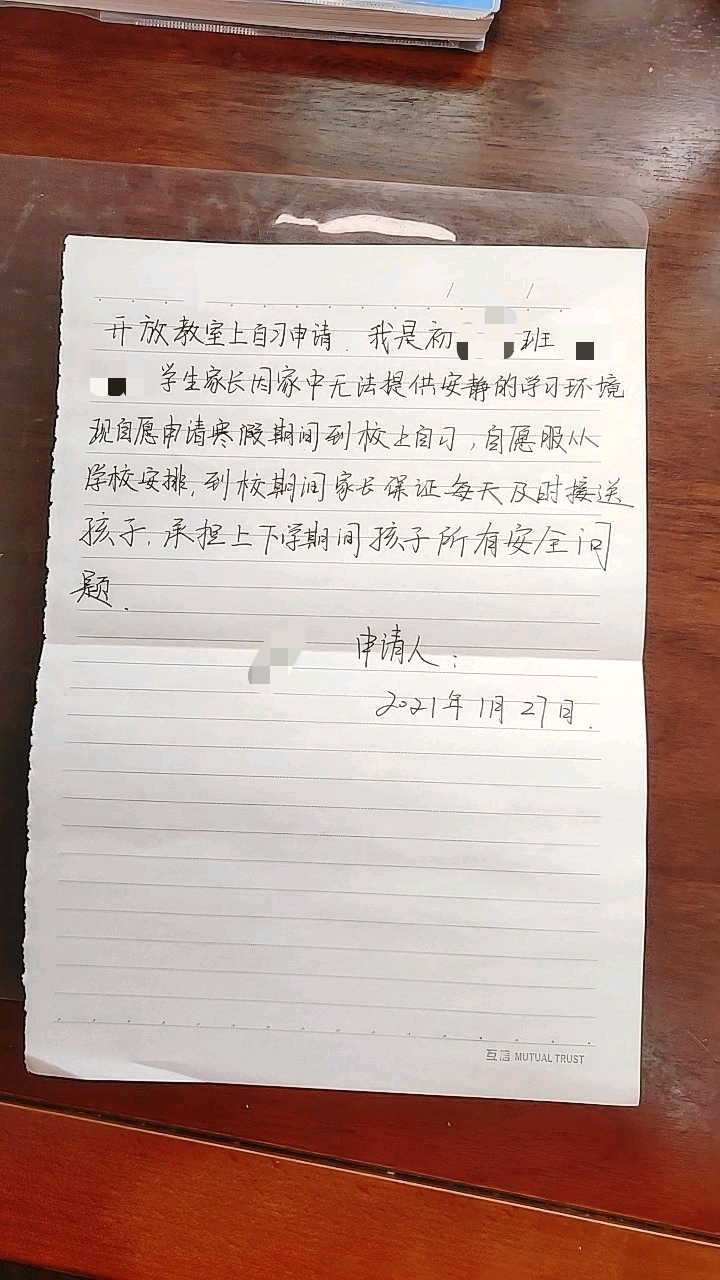 开放教室上自习申请.我是初 班
学生家长因家中无法提供安静的学习环境
现自愿申请寒假期间到校上自习,自愿服从
学校安排,到校期间家长保证每天及时接送
孩子.承担上下学期间孩子所有安全问
题.
申请人:
2021年1月27日.
互信 MUTUAL TRUST